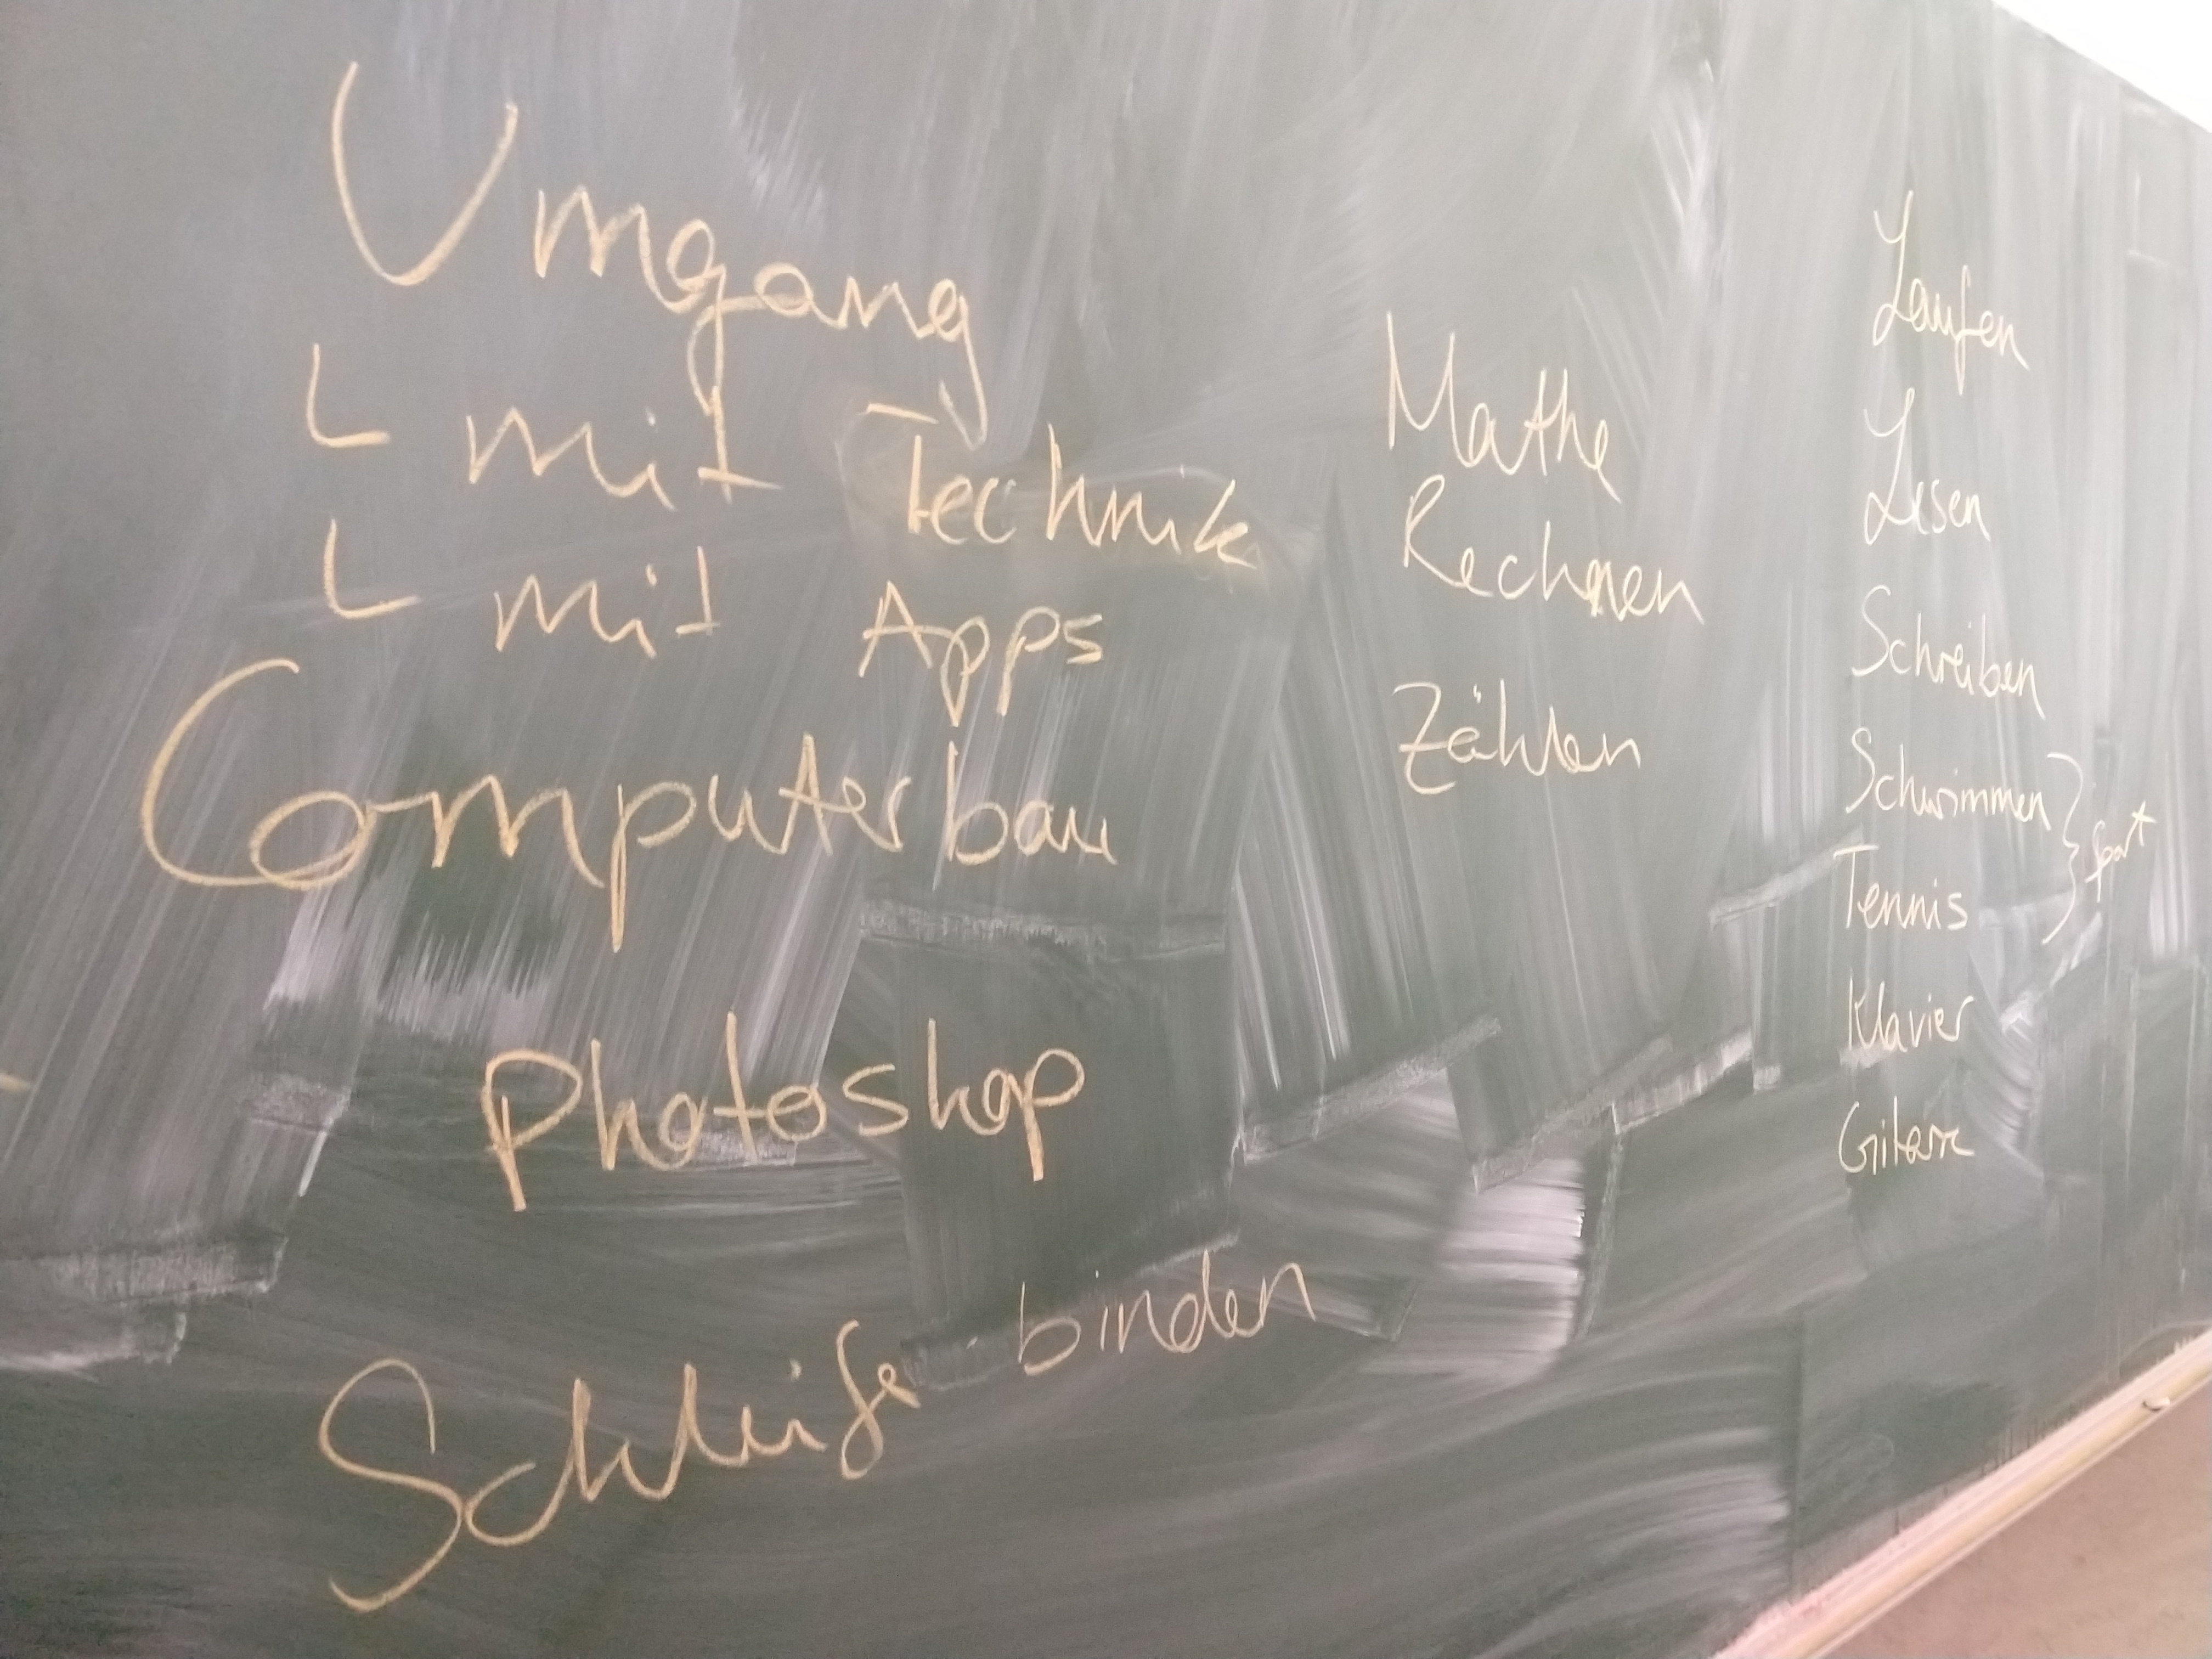 Umgang
L mit Technik
L mit Apps
Computerbau
Photoshop
Schleife binden
Mathe
Rechnen
Zählen
Laufen
Lesen
Schreiben
Schwimmen
Tennis
} Sport
Klavier
Gitarre